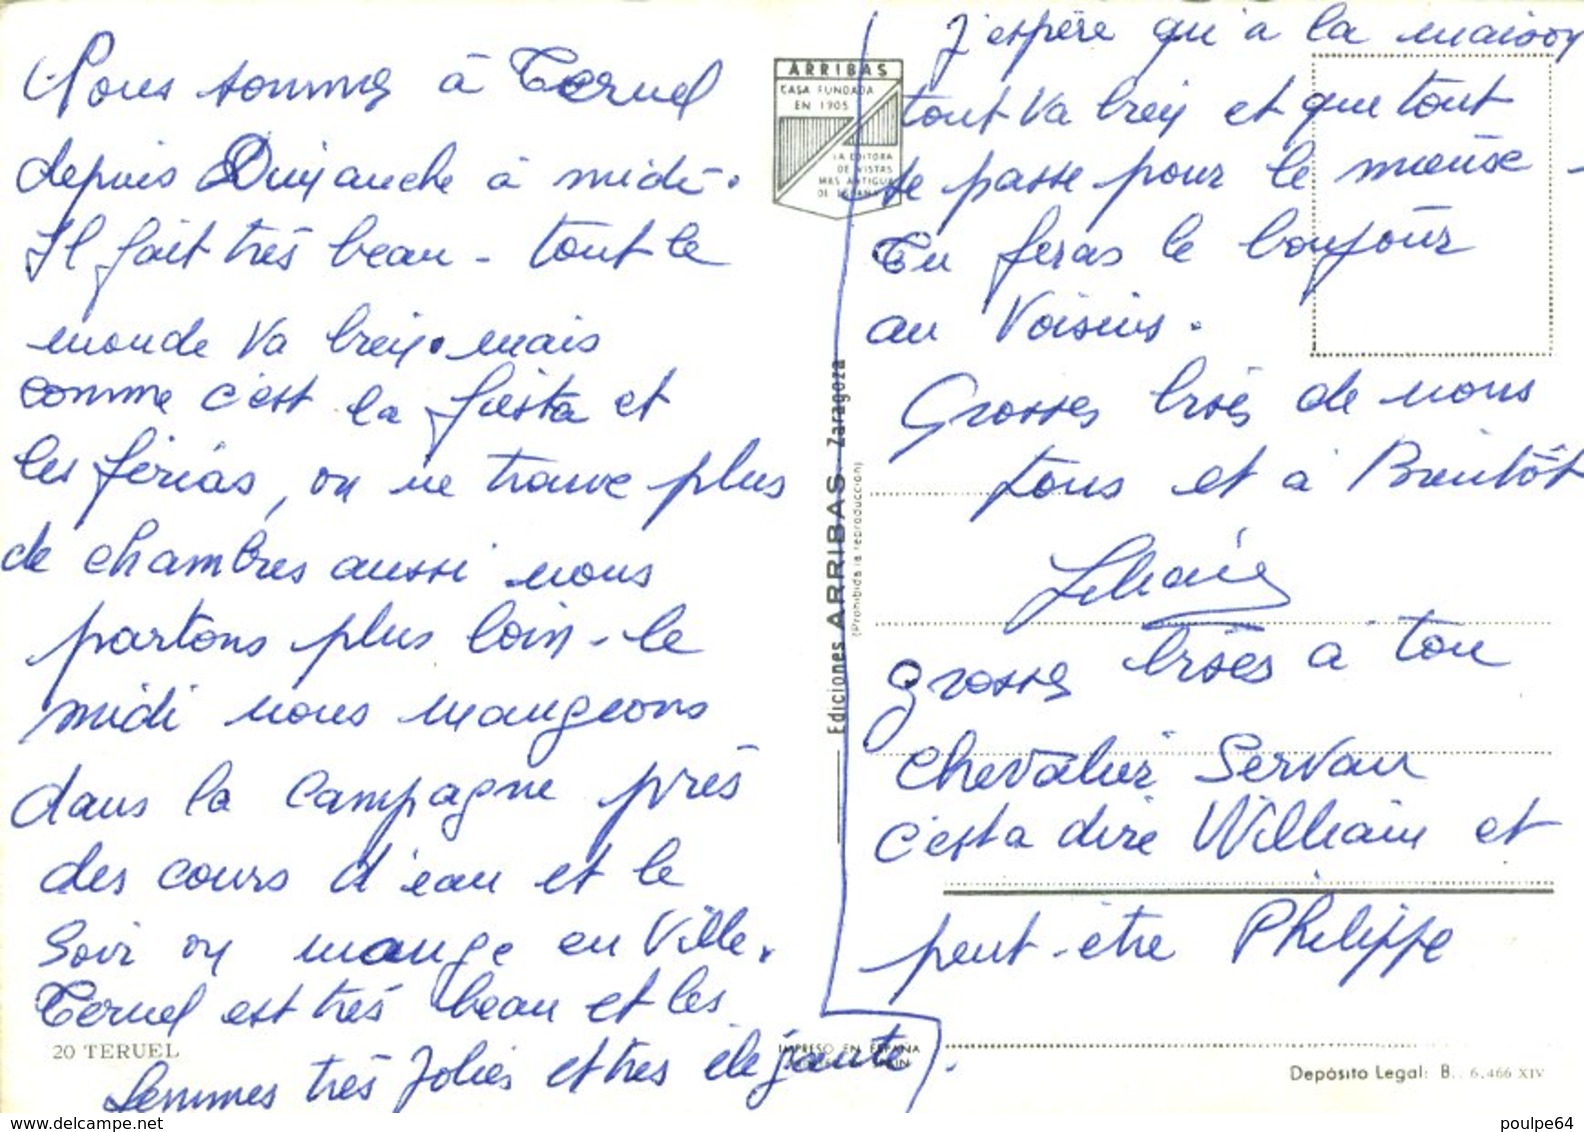 Nous sommes à Teruel
depuis Dimanche à midi.
Il fait très beau - tout le
monde va bien. mais
comme c'est la fiesta et
les férias, on ne trouve plus
de chambres aussi nous
partons plus loin - le
midi nous mangeons
dans la campagne près
des cours d'eau et le
soir on mange en ville.
Teruel est très beau et les
femmes très jolies et très élégante.
20 TERUEL
ARRIBAS
CASA FUNDADA
EN 1905
LA EDITORA
DE VISTAS
MAS ANTIGUA
DE ESPAÑA
Ediciones ARRIBAS - Zaragoza
(Prohibida la reproducción)
IMPRESO EN ESPAÑA
J'espère qu'a la maison
tout va bien et que tout
se passe pour le mieux -
Tu feras le bonjour
au Voisins.
Grosses bises de nous
tous et à Bientôt
Liliane
grosses bises à ton
chevalier Servan
c'est a dire William et
peut-être Philippe
Depósito Legal: B. 6.466 XIV
poulpe64